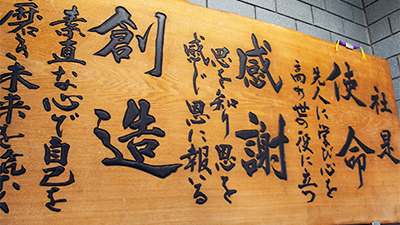 社是
使命
先人に学び心を
高め世の役に立つ
感謝
恩を知り恩を
感じ恩に報いる
創造
素直な心で自己を
磨き未来を築く